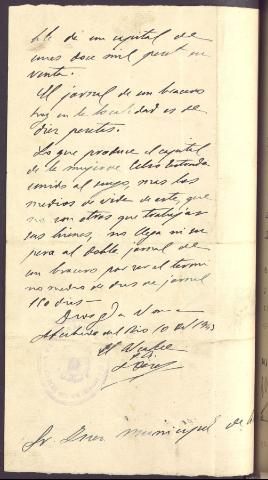 de un capital de
unos doce mil peset en
venta.
El jornal de un bracero
hoy en la localidad es de
diez pesetas.
Lo que produce el capital
de la mujer de Celso
unido al suyo, mas los
medios de vida de este, que
no son otros que trabajar
sus bienes, no llega ni su
pera al doble jornal de
un bracero por ser el termi
no medio de dias de jornal
180 dias
Dios gde
del Rio 10
El Alcalde
Sr. Juez municipal de